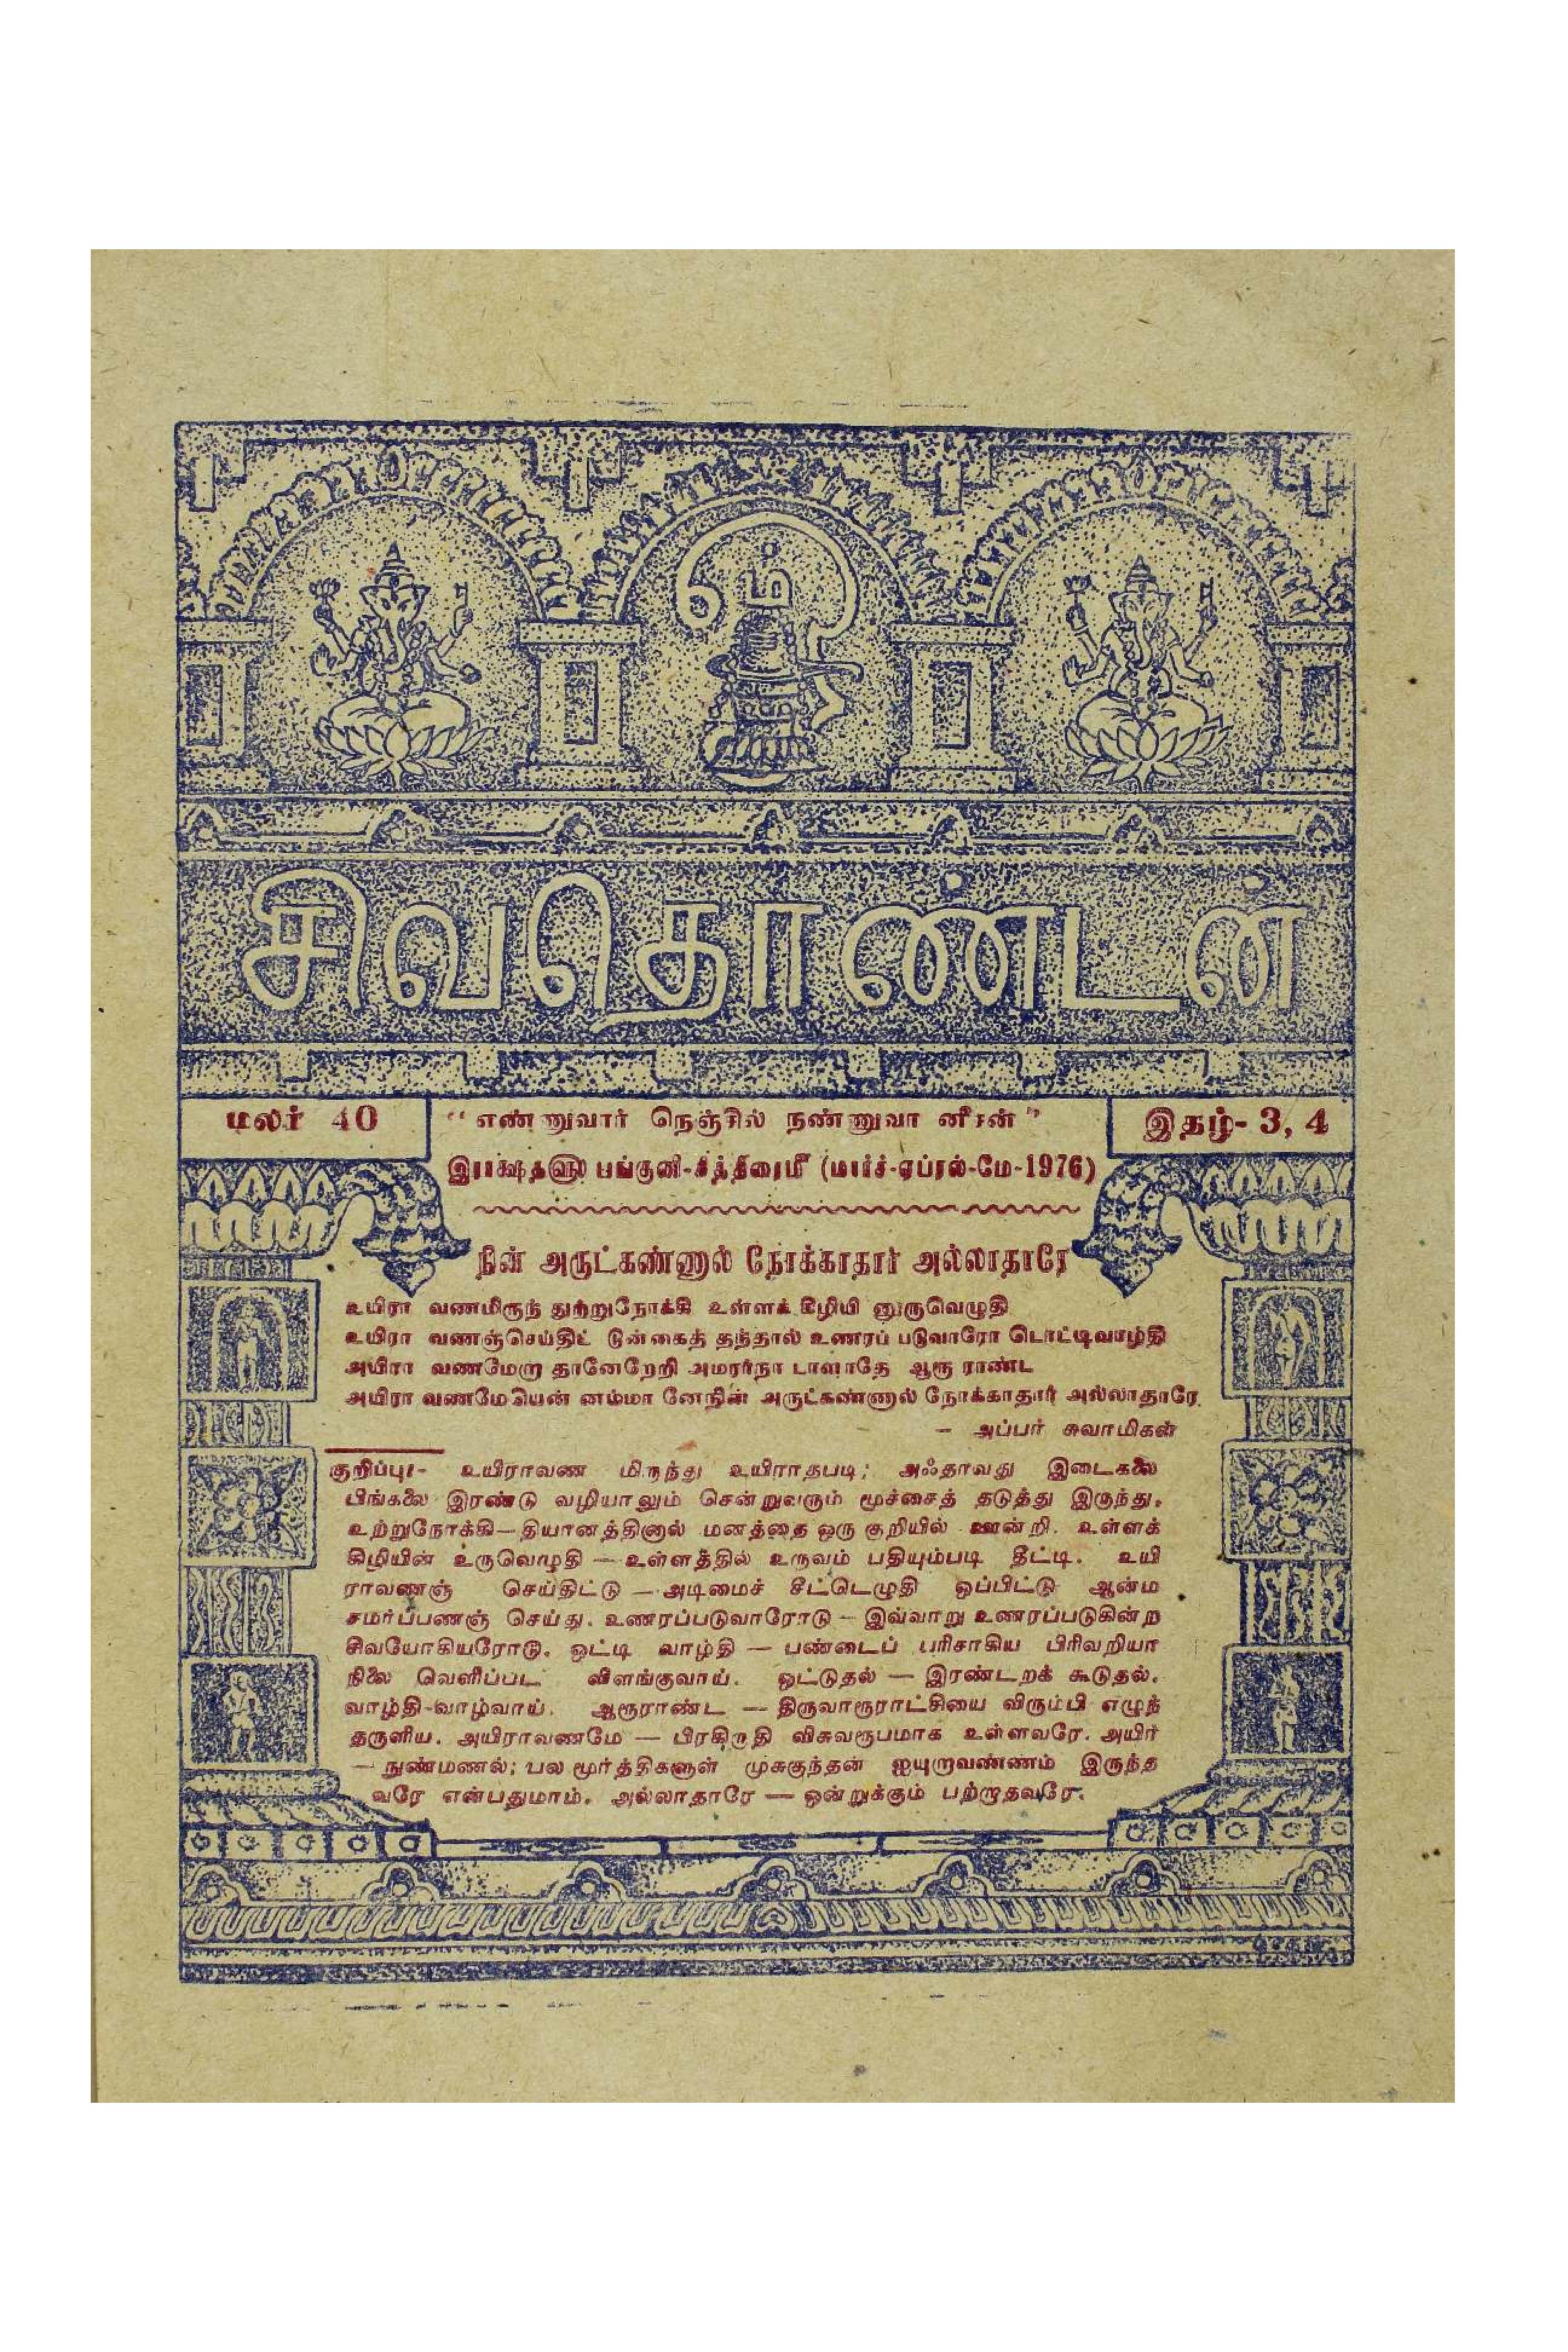 சிவதொண்டன்
மலர் 40
"எண்ணுவார் நெஞ்சில் நண்ணுவா னீசன்"
இதழ்- 3, 4
இராக்ஷதளூ பங்குனி-சித்திரைமீ (மார்ச்-ஏப்ரல்-மே-1976)
நின் அருட்கண்ணால் நோக்காதார் அல்லாதாரே
உயிரா வணமிருந் துற்றுநோக்கி உள்ளக் கிழியி னுருவெழுதி
உயிரா வணஞ்செய்திட் டுன்கைத் தந்தால் உணரப் படுவாரோ டொட்டிவாழ்தி
அயிரா வணமேறா தானேறேறி அமரர்நா டாளாதே ஆரூ ராண்ட
அயிரா வணமேயென் னம்மா னேநின் அருட்கண்ணால் நோக்காதார் அல்லாதாரே.
– அப்பர் சுவாமிகள்
குறிப்பு:- உயிராவண மிருந்து உயிராதபடி; அஃதாவது இடைகலை
பிங்கலை இரண்டு வழியாலும் சென்றுவரும் மூச்சைத் தடுத்து இருந்து.
உற்றுநோக்கி—தியானத்தினால் மனத்தை ஒரு குறியில் ஊன்றி. உள்ளக்
கிழியின் உருவெழுதி — உள்ளத்தில் உருவம் பதியும்படி தீட்டி. உயி
ராவணஞ் செய்திட்டு — அடிமைச் சீட்டெழுதி ஒப்பிட்டு ஆன்ம
சமர்ப்பணஞ் செய்து. உணரப்படுவாரோடு — இவ்வாறு உணரப்படுகின்ற
சிவயோகியரோடு. ஒட்டி வாழ்தி — பண்டைப் பரிசாகிய பிரிவறியா
நிலை வெளிப்பட விளங்குவாய். ஒட்டுதல் — இரண்டறக் கூடுதல்.
வாழ்தி-வாழ்வாய். ஆரூராண்ட — திருவாரூராட்சியை விரும்பி எழுந்
தருளிய. அயிராவணமே — பிரகிருதி விசுவரூபமாக உள்ளவரே. அயிர்
— நுண்மணல்; பல மூர்த்திகளுள் முசுகுந்தன் ஐயுறுவண்ணம் இருந்த
வரே என்பதுமாம். அல்லாதாரே — ஒன்றுக்கும் பற்றாதவரே.